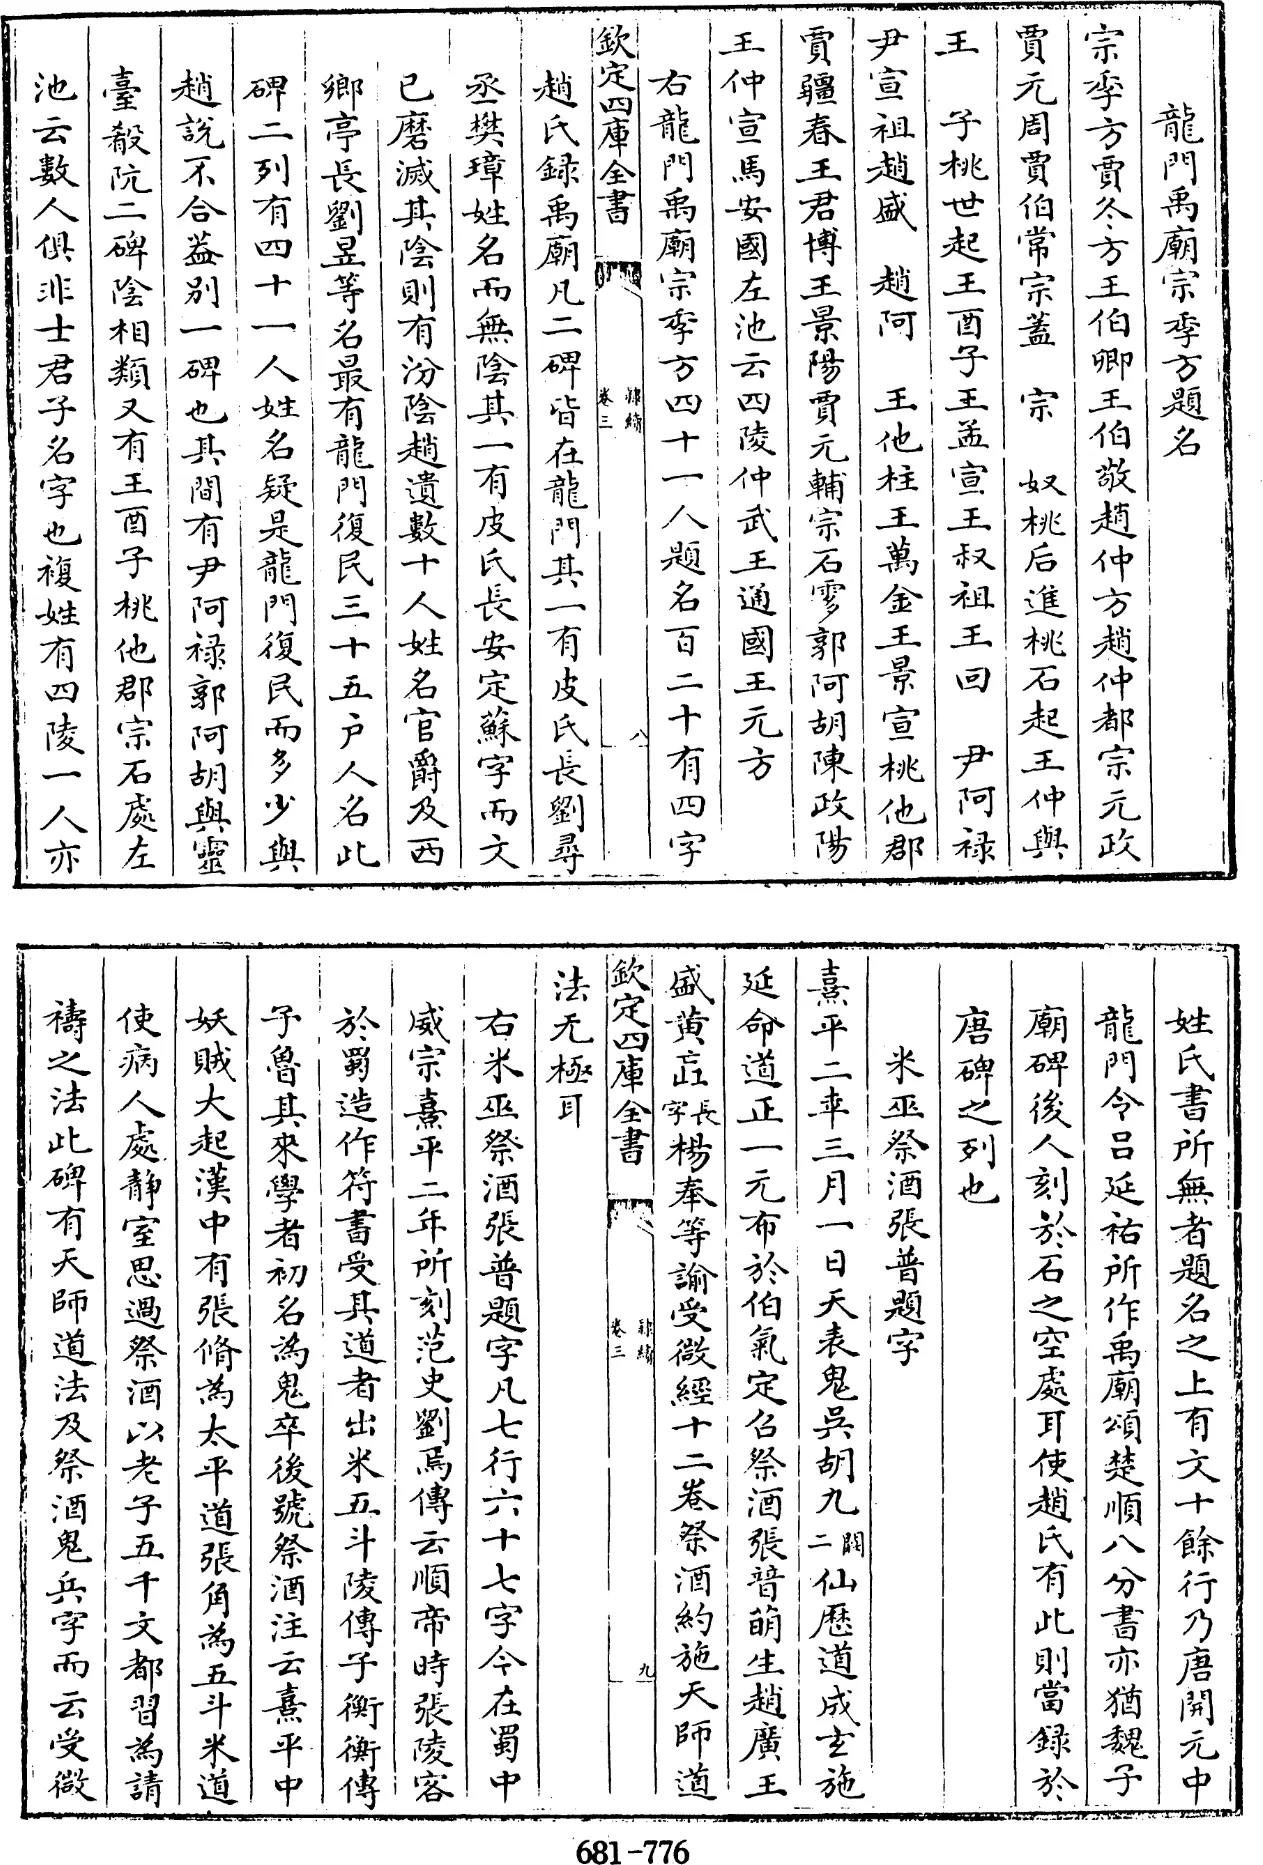 龍門禹廟宗季方題名
宗季方賈夂方王伯卿王伯敬趙仲方趙仲都宗元政
賈元周賈伯常宗蓋　宗　奴桃后進桃石起王仲與
王　子桃世起王酉子王孟宣王叔祖王回　尹阿禄
尹宣祖趙盛　趙阿　王他柱王萬金王景宣桃他郡
賈疆春王君博王景陽賈元輔宗石雩郭阿胡陳政陽
王仲宣馬安國左池云四陵仲武王通國王元方
右龍門禹廟宗季方四十一人題名百二十有四字
欽定四庫全書　隸續卷三　八
趙氏録禹廟凡二碑皆在龍門其一有皮氏長劉尋
丞樊璋姓名而無陰其一有皮氏長安定蘇字而文
已磨滅其陰則有汾陰趙遺數十人姓名官爵及西
鄉亭長劉昱等名最有龍門復民三十五户人名此
碑二列有四十一人姓名疑是龍門復民而多少與
趙說不合葢别一碑也其間有尹阿禄郭阿胡與靈
臺殽阬二碑陰相類又有王酉子桃他郡宗石處左
池云數人俱非士君子名字也複姓有四陵一人亦
姓氏書所無者題名之上有文十餘行乃唐開元中
龍門令吕延祐所作禹廟頌楚順八分書亦猶魏子
廟碑後人刻於石之空處耳使趙氏有此則當録於
唐碑之列也
米巫祭酒張普題字
熹平二年三月一日天表鬼吳胡九闕二仙歷道成玄施
延命道正一元布於伯氣定召祭酒張普萌生趙廣王
盛黄長字楊奉等諭受微經十二卷祭酒約施天師道
欽定四庫全書　隸續卷三　九
法无極耳
右米巫祭酒張普題字凡七行六十七字今在蜀中
威宗熹平二年所刻范史劉焉傳云順帝時張陵客
於蜀造作符書受其道者出米五斗陵傳子衡衡傳
子魯其來學者初名為鬼卒後號祭酒注云熹平中
妖賊大起漢中有張脩為太平道張角為五斗米道
使病人處靜室思過祭酒以老子五千文都習為請
禱之法此碑有天師道法及祭酒鬼兵字而云受微
681-776